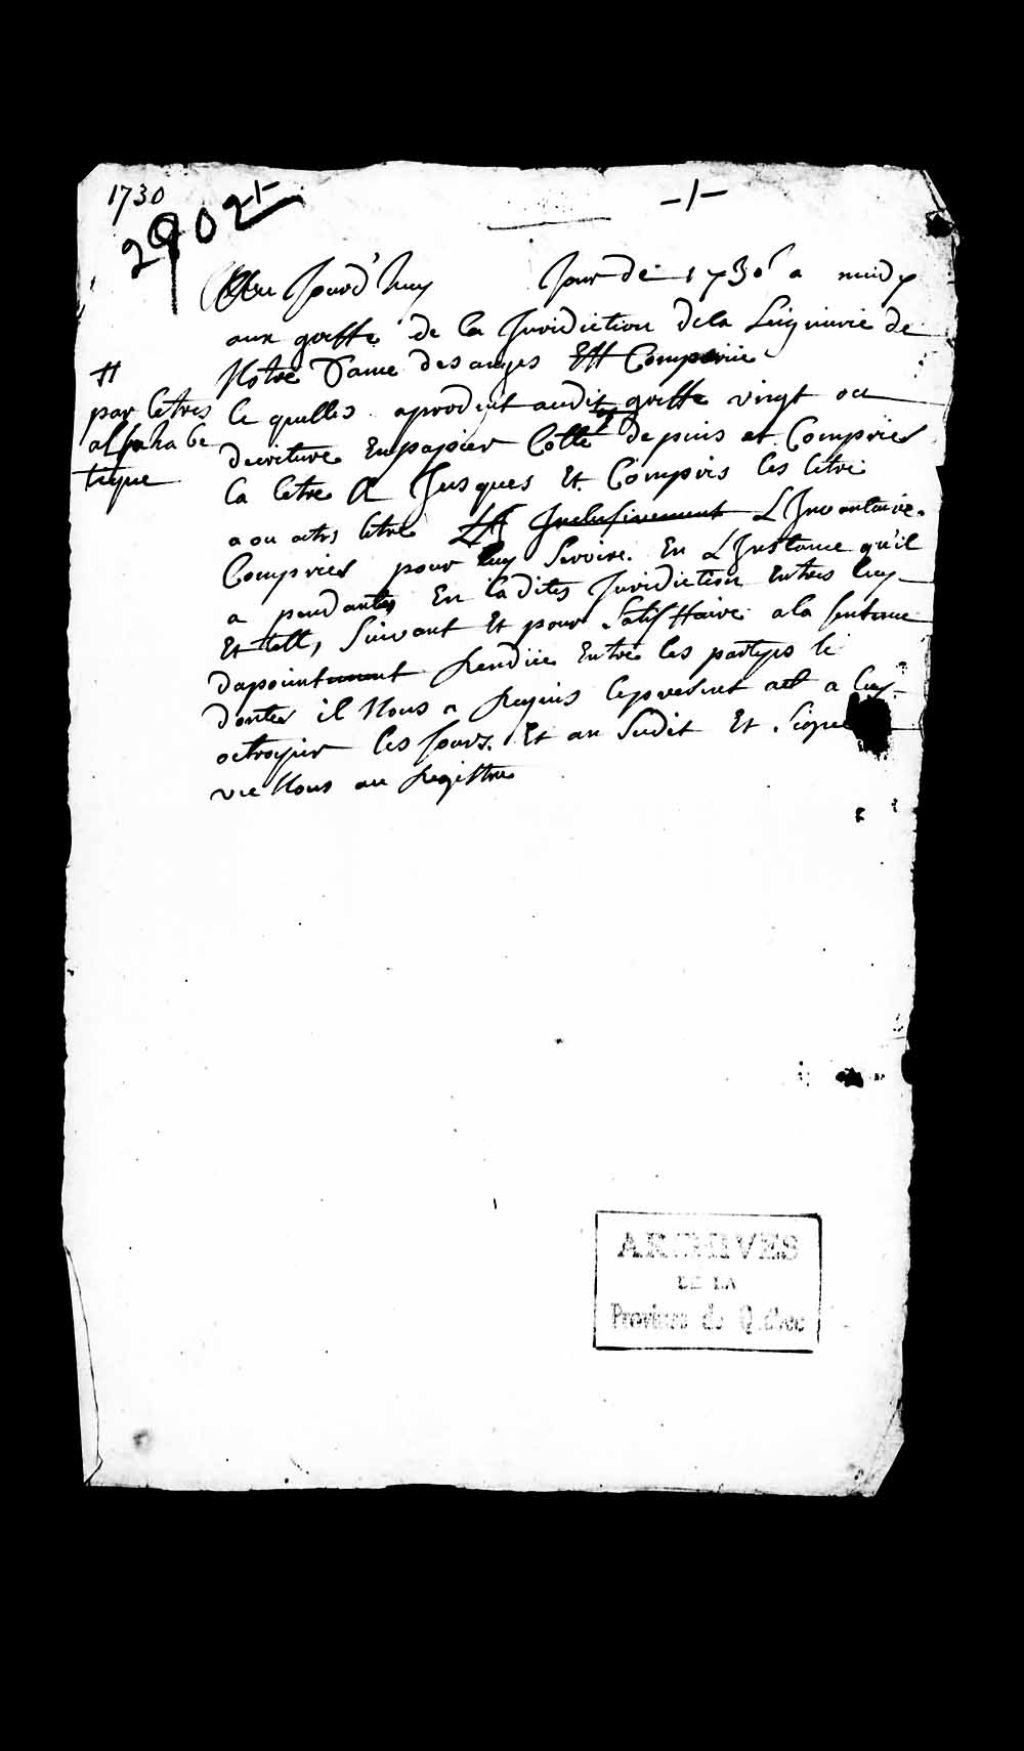 1730
2902
-1-
Au Jourd'huy Jour de 1730 a midy
aux greffe de la Juridiction dela Seigneurie de
Notre Dame des anges Est Comparüe
le quelles aproduit audit greffe vingt
decriture En papier Cotté depuis et Compries
la letre A Jusques Et Compris les letre
a ou letre Inclusivement L'Inventaire
Compries pour luy Servire En L'Instance qu'il
a pendantes En laditte Juridiction Entres luy
Et Suivant Et pour Satisffaire a la sentence
dapointement Rendüe Entre les partyes le
dontes il Nous a Requis le present act a luy
octroyer les jours Et an Sudit Et Signé
vec Nous au Registre
#
par letres
alphabe
tique
ARCHIVES
DE LA
Province de Québec